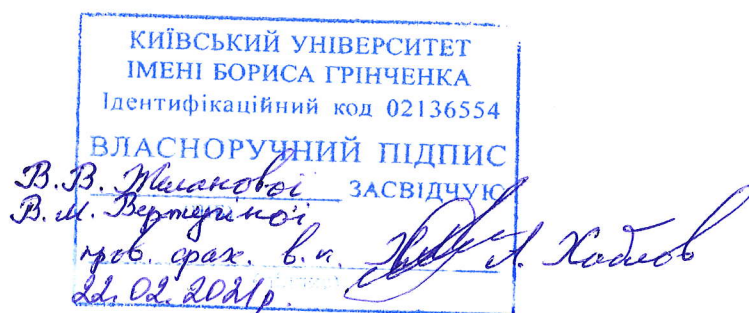 КИЇВСЬКИЙ УНІВЕРСИТЕТ
ІМЕНІ БОРИСА ГРІНЧЕНКА
Ідентифікаційний код 02136554
ВЛАСНОРУЧНИЙ ПІДПИС
В.В. Желанової ЗАСВІДЧУЮ
В.М. Вертугіної
пров. фах. в.к.
22.02.2021р.